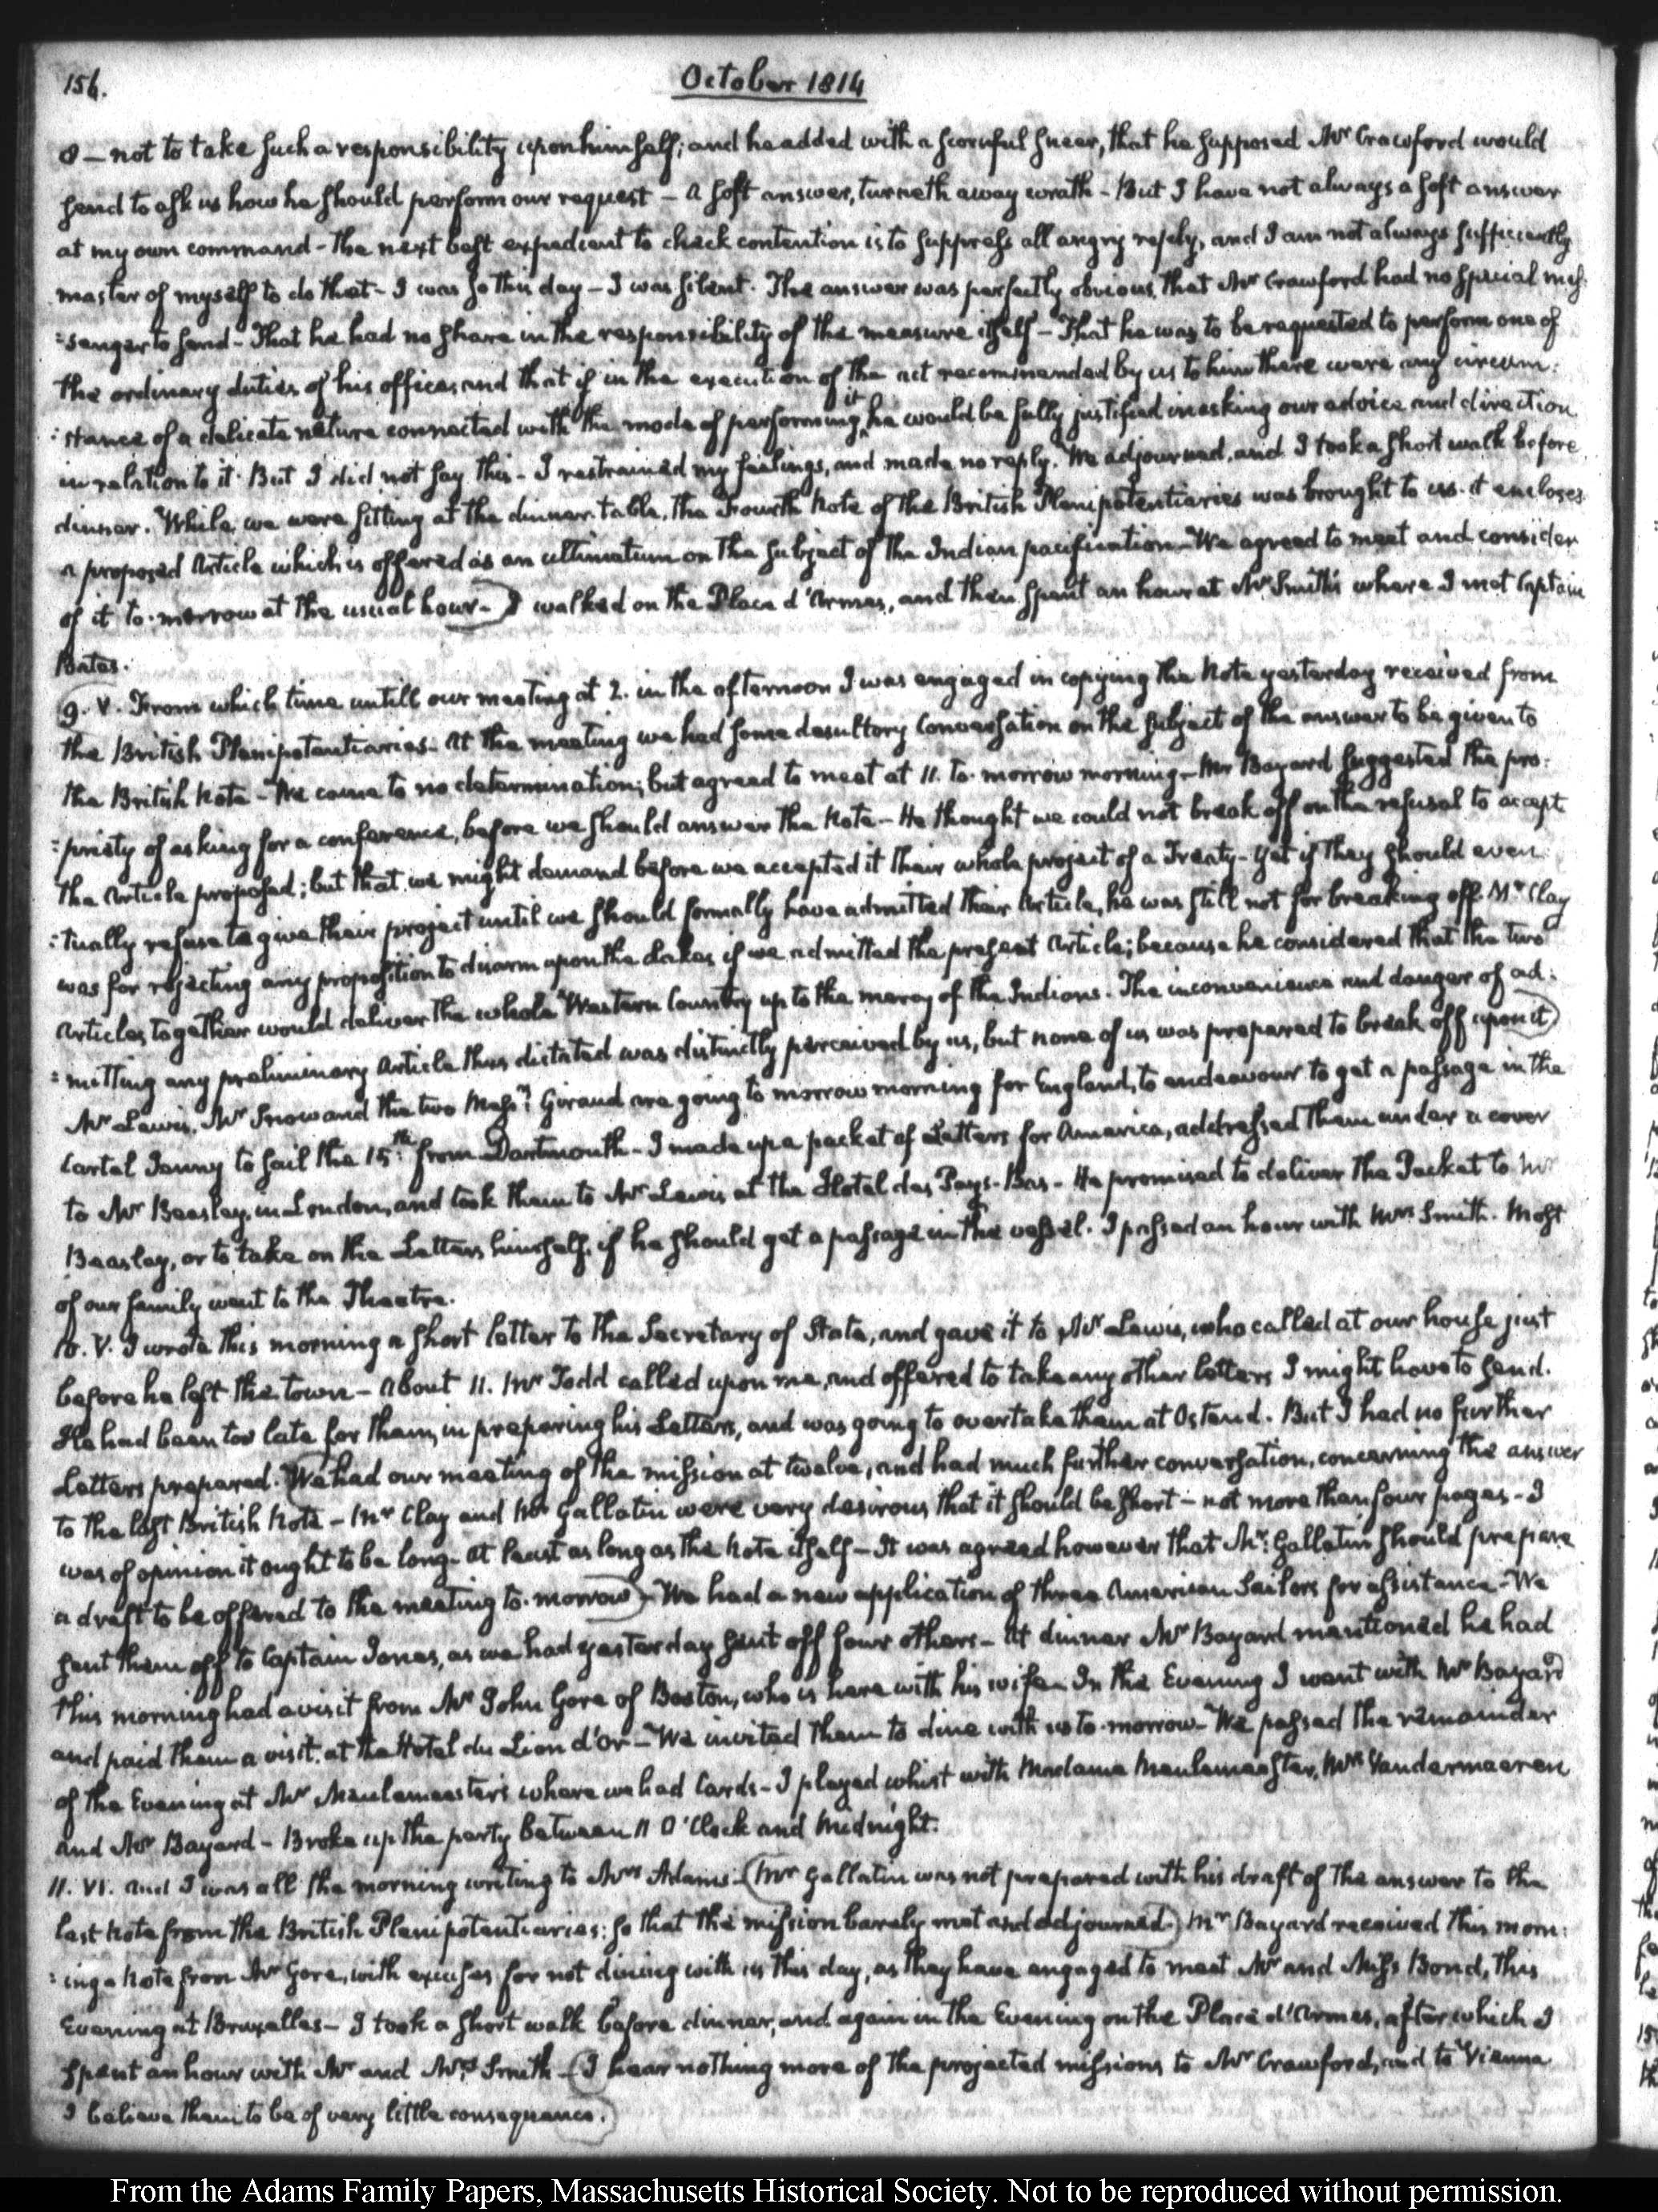 156.
October 1814
8 — not to take such a responsibility upon himself; and he added with a scornful sneer, that he supposed Mr Crawford would
send to ask us how he should perform our request — a soft answer, turneth away wrath — But I have not always a soft answer
at my own command — The next best expedient to check contention is to suppress all angry reply, and I am not always sufficiently
master of myself to do that — I was so this day — I was silent. The answer was perfectly obvious, that Mr Crawford had no special mes:
:senger to send — That he had no share in the responsibility of the measure itself — That he was to be requested to perform one of
the ordinary duties of his office; and that if in the execution of the act recommended by us to him there were any circum:
:stance of a delicate nature connected with the mode of performing it, he would be fully justified in asking our advice and direction
in relation to it. But I did not say this — I restrained my feelings, and made no reply. We adjourned, and I took a short walk before
dinner. While we were sitting at the dinner-table, the Fourth Note of the British Plenipotentiaries was brought to us. it encloses
a proposed Article which is offered as an ultimatum on the subject of the Indian pacification — We agreed to meet and consider
of it to-morrow at the usual hour —) I walked on the Place d'Armes, and then spent an hour at Mr Smith's where I met Captain
Bates.
9. V. From which time untill our meeting at 2. in the afternoon I was engaged in copying the Note yesterday received from
the British Plenipotentiaries — At the meeting we had some desultory Conversation on the subject of the answer to be given to
the British Note — We came to no determination; but agreed to meet at 11. to-morrow morning — Mr Bayard suggested the pro:
:priety of asking for a conference, before we should answer the Note — He thought we could not break off on the refusal to accept
the Article proposed; but that we might demand before we accepted it their whole project of a Treaty — yet if they should even:
:tually refuse to give their project until we should formally have admitted their Article, he was still not for breaking off. Mr Clay
was for rejecting any proposition to disarm upon the Lakes if we admitted the present Article; because he considered that the two
Articles together would deliver the whole Western Country up to the mercy of the Indians. The inconvenience and danger of ad:
:mitting any preliminary Article thus dictated was distinctly perceived by us, but none of us was prepared to break off upon it)
Mr Lewis, Mr Snow and the two Messrs Geraud are going to morrow morning for England, to endeavour to get a passage in the
Cartel Janny to sail the 15th from Dartmouth — I made up a packet of Letters for America, addressed them under a cover
to Mr Beasley, in London, and took them to Mr Lewis at the Hotel des Pays-Bas — He promised to deliver the Packet to Mr
Beasley, or to take on the Letters himself, if he should get a passage in the vessel. I passed an hour with Mrs Smith. Most
of our family went to the Theatre.
10. V. I wrote this morning a short letter to the Secretary of State, and gave it to Mr Lewis, who called at our house just
before he left the town — About 11. Mr Todd called upon me, and offered to take any other letters I might have to send.
He had been too late for them, in preparing his Letters, and was going to overtake them at Ostend. But I had no further
Letters prepared. (We had our meeting of the mission at twelve, and had much further conversation, concerning the answer
to the last British Note — Mr Clay and Mr Gallatin were very desirous that it should be short — not more than four pages — I
was of opinion it ought to be long — at least as long as the Note itself — It was agreed however that Mr Gallatin should prepare
a draft to be offered to the meeting to-morrow) — We had a new application of three American Sailors for assistance — We
sent them off to Captain Jones, as we had yesterday sent off four others — At dinner Mr Bayard mentioned he had
this morning had a visit from Mr John Gore of Boston, who is here with his wife — In the Evening I went with Mr Bayard
and paid them a visit at the Hotel du Lion d'or — We invited them to dine with us to-morrow — We passed the remainder
of the Evening at Mr Meulemeester's where we had Cards — I played whist with Madame Meulemeester, Mrs Vandermaeren
and Mr Bayard — Broke up the party between 11 O'Clock and Midnight.
11. VI. and I was all the morning writing to Mrs Adams — (Mr Gallatin was not prepared with his draft of the answer to the
last Note from the British Plenipotentiaries: so that the mission barely met and adjourned.) Mr Bayard received this morn:
:ing a Note from Mr Gore, with excuses for not dining with us this day, as they have engaged to meet Mr and Miss Bond, this
Evening at Bruxelles — I took a short walk before dinner, and again in the Evening on the Place d'Armes, after which I
spent an hour with Mr and Mrs Smith — (I hear nothing more of the projected missions to Mr Crawford, and to Vienna
I believe them to be of very little consequence.)
From the Adams Family Papers, Massachusetts Historical Society. Not to be reproduced without permission.